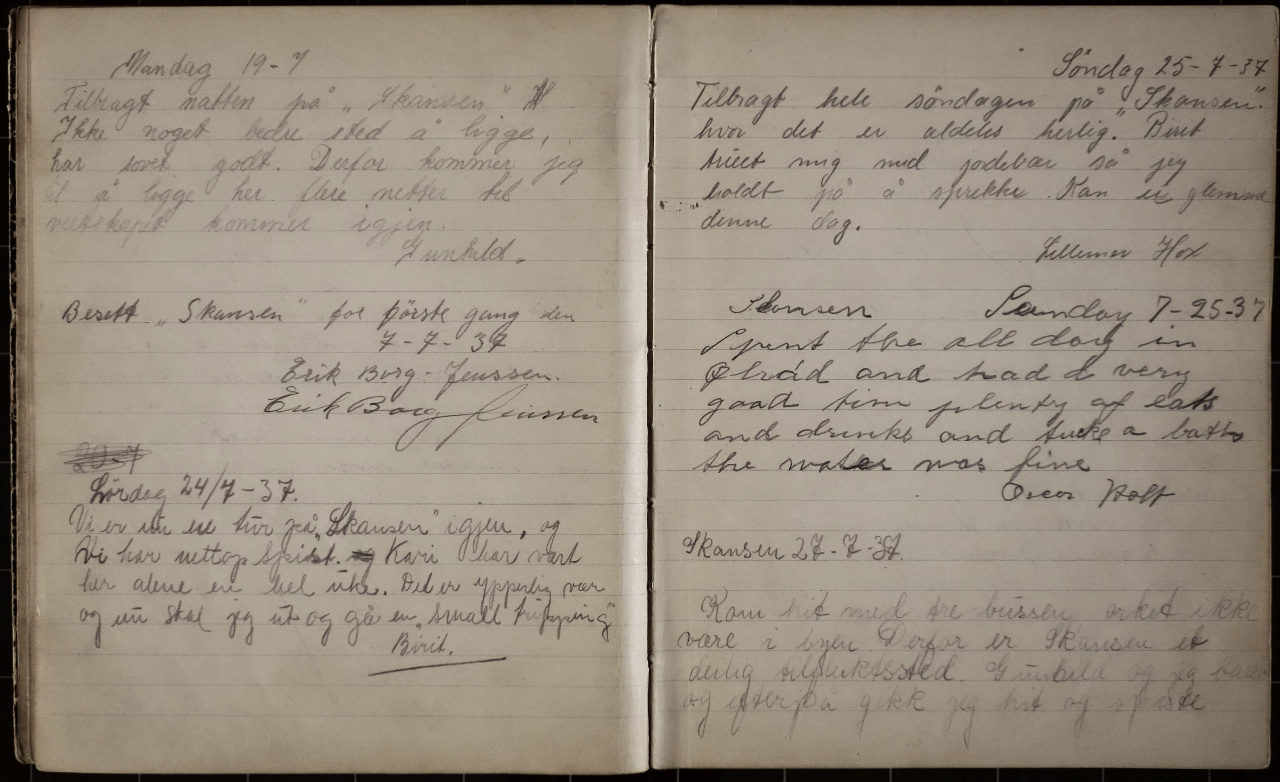 Mandag 19-7
Tilbragt natten på „Skansen"
Ikke noget bedre sted å ligge,
har sovet godt. Derfor kommer jeg
til å ligge her flere netter til
vertskapet kommer igjen.
Gunhild.
Besøkt „Skansen" for første gang den
7-7-37
Erik Borg-Jenssen.
Erik Borg Jenssen
20-7
Lördag 24/7-37.
Vi er nu en tur på „Skansen" igjen, og
Vi har nettop spist. og Kari har vært
her alene en hel uke. Det er ypperlig vær
og nu skal jeg ut og gå en „small tripping"
Birit.
Söndag 25-7-37
Tilbragt hele söndagen på „Skansen".
hvor det er aldeles herlig. Birit
mig med jodebær så jeg
holdt på å sprekke. Kan ei glemme
denne dag.
Lillemor
Skansen Sunday 7-25-37
Spent the all day in
and had a very
good tim plenty of eats
and drinks and tucke a bath
the water was fine
Oscar Holt
Skansen 27-7-37.
Kom hit med tre bussen, orket ikke
være i byen Derfor er Skansen et
deilig tilfluktssted. Gunhild og jeg badet
og efterpå gikk jeg hit og spiste